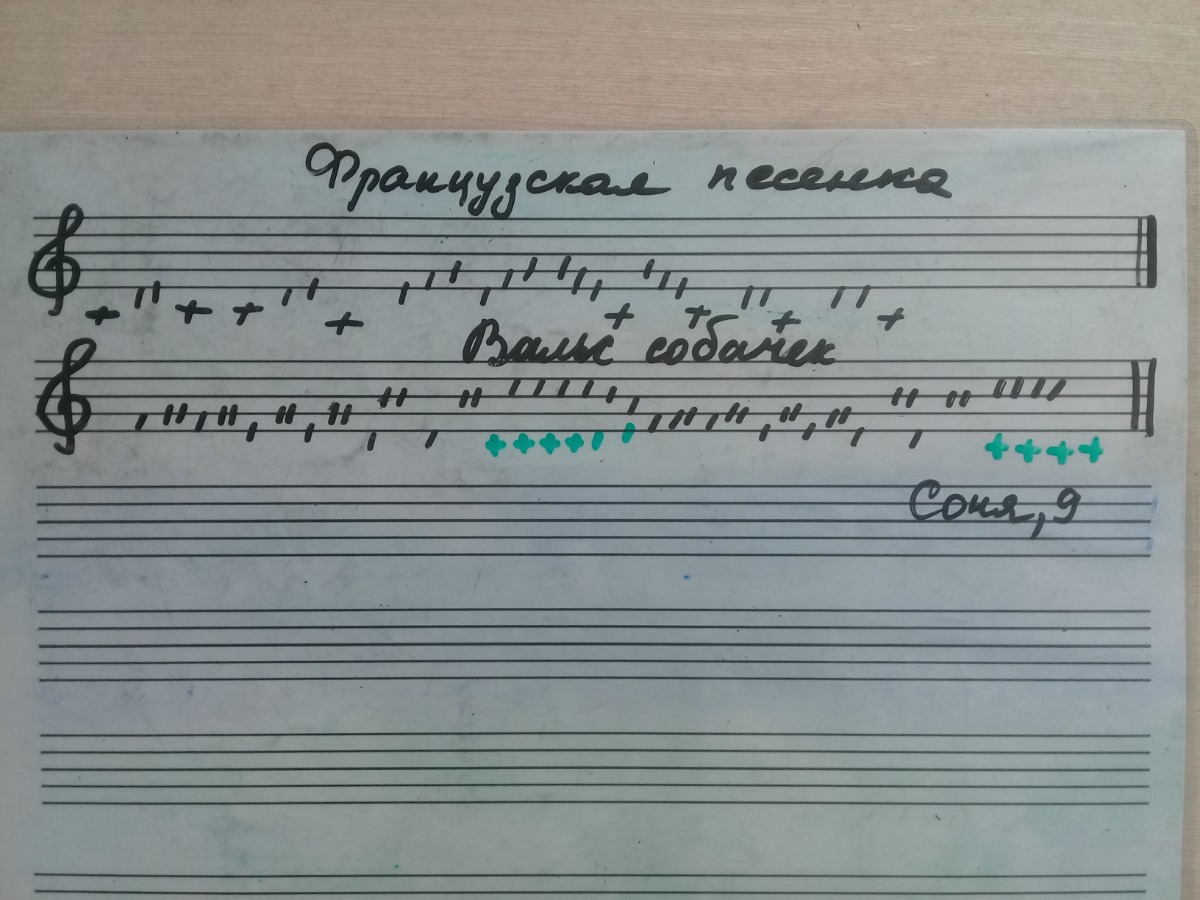 Французская песенка
Вальс собачек
Соня, 9